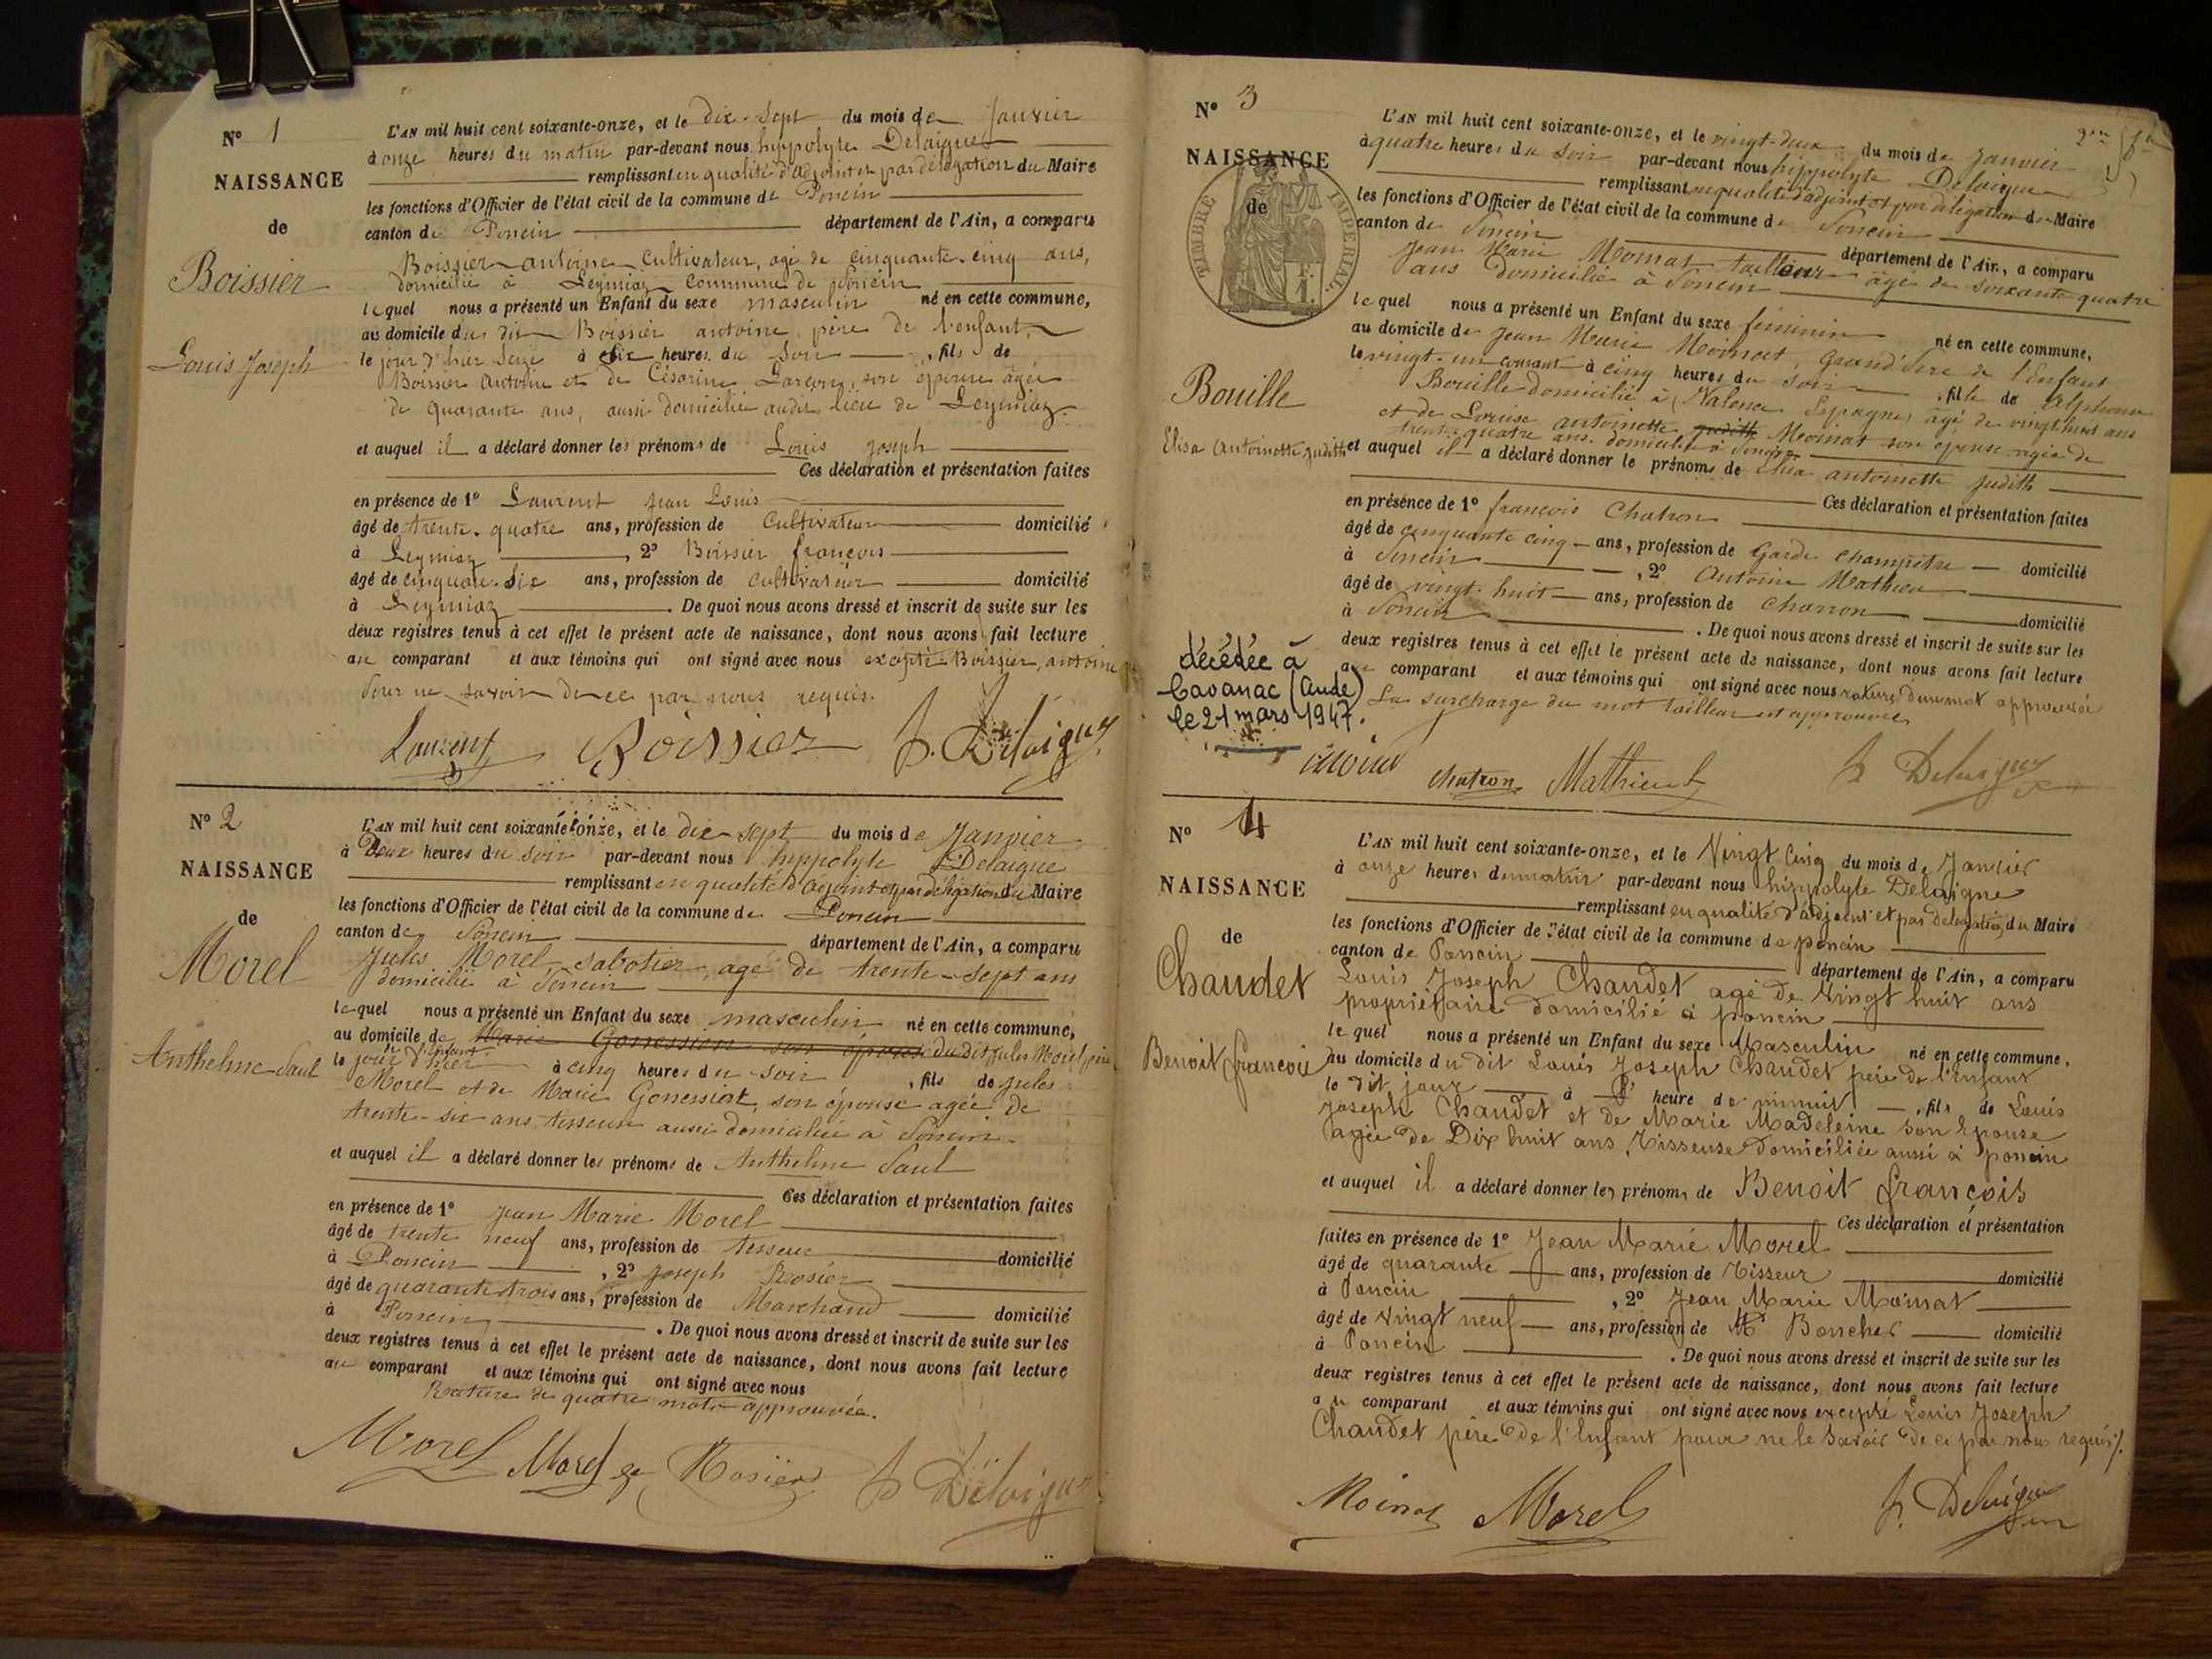 N° 1
NAISSANCE
de
Boissier
Louis Joseph
L'AN mil huit cent soixante-onze, et le dix-sept du mois de Janvier
à onze heures du matin par-devant nous hippolyte Delaigue
remplissant en qualité d'adjoint et par délégation du Maire
les fonctions d'Officier de l'état civil de la commune de Poncin
canton de Poncin département de l'Ain, a comparu
Boissier antoine Cultivateur, agé de cinquante-cinq ans,
domicilié à Leymiaz Commune de Poncin
lequel nous a présenté un Enfant du sexe masculin né en cette commune,
au domicile du dit Boissier antoine, père de l'enfant,
le jour d'hier seize à six heures du soir, fils de
Boissier Antoine et de Césarine son épouse agée
de quarante ans, aussi domiciliée audit lieu de Leymiaz.
et auquel il a déclaré donner les prénoms de Louis Joseph
Ces déclaration et présentation faites
en présence de 1° Laurent Jean Louis
âgé de trente-quatre ans, profession de Cultivateur domicilié
à Leymiaz, 2° Boissier françois
âgé de cinquante-six ans, profession de cultivateur domicilié
à Leymiaz. De quoi nous avons dressé et inscrit de suite sur les
deux registres tenus à cet effet le présent acte de naissance, dont nous avons fait lecture
au comparant et aux témoins qui ont signé avec nous excepté Boissier, antoine
Pour ne savoir de ce par nous requis.
Laurent Boissier h. Delaigue
N° 2
NAISSANCE
de
Morel
Anthelme Paul
L'AN mil huit cent soixante-onze, et le dix-sept du mois de Janvier
à Deux heures du soir par-devant nous hippolyte Delaigue
remplissant en qualité d'adjoint et par délégation du Maire
les fonctions d'Officier de l'état civil de la commune de Poncin
canton de Poncin département de l'Ain, a comparu
Jules Morel sabotier, agé de trente-sept ans
domicilié à Poncin
lequel nous a présenté un Enfant du sexe masculin né en cette commune,
au domicile de Marie Gonession son épouse du dit Jules Morel père
de l'enfant
le jour d'hier à cinq heures du soir, fils de Jules
Morel et de Marie Gonessiat, son épouse agée de
trente-six ans, tisseuse aussi domiciliée à Poncin.
et auquel il a déclaré donner les prénoms de Anthelme Paul
Ces déclaration et présentation faites
en présence de 1° Jean Marie Morel
âgé de trente neuf ans, profession de tisseur domicilié
à Poncin, 2° Joseph Rosier
âgé de quarante trois ans, profession de Marchand domicilié
à Poncin. De quoi nous avons dressé et inscrit de suite sur les
deux registres tenus à cet effet le présent acte de naissance, dont nous avons fait lecture
au comparant et aux témoins qui ont signé avec nous
Rature de quatre mots approuvée.
Morel Morel Rosier h Delaigue
N° 3
NAISSANCE
de
TIMBRE IMPERIAL
Bouille
Elisa Antoinette Judith
2me
L'AN mil huit cent soixante-onze, et le vingt-deux du mois de Janvier
à quatre heures du soir par-devant nous hippolyte Delaigue
remplissant en qualité d'adjoint et par délégation du Maire
les fonctions d'Officier de l'état civil de la commune de Poncin
canton de Poncin département de l'Ain, a comparu
Jean Marie Moinat tailleur âgé de soixante quatre
ans domicilié à Poncin
lequel nous a présenté un Enfant du sexe féminin né en cette commune,
au domicile de Jean Marie Moinat, Grand'Père de l'Enfant
le vingt-un courant à cinq heures du soir, fille de Alphonse
Bouille domicilié à Valence Espagne, agé de vingt huit ans
et de Louise Antoinette Judith Moinat son épouse agée de
trente-quatre ans domiciliée à Poncin
et auquel il a déclaré donner le prénoms de Elisa antoinette Judith
Ces déclaration et présentation faites
en présence de 1° françois Chatron
âgé de cinquante cinq ans, profession de Garde Champêtre domicilié
à Poncin, 2° Antoine Mathieu
âgé de vingt-huit ans, profession de Charron domicilié
à Poncin. De quoi nous avons dressé et inscrit de suite sur les
deux registres tenus à cet effet le présent acte de naissance, dont nous avons fait lecture
au comparant et aux témoins qui ont signé avec nous rature d'un mot approuvée
La surcharge du mot tailleur est approuvée
décédée à
Cavanac (Aude)
le 21 mars 1947.
Chatron Mathieu h Delaigue
N° 4
NAISSANCE
de
Chaudet
Benoit françois
L'AN mil huit cent soixante-onze, et le Vingt Cinq du mois de Janvier
à onze heures du matin par-devant nous hippolyte Delaigue
remplissant en qualité d'adjoint et par délégation du Maire
les fonctions d'Officier de l'état civil de la commune de poncin
canton de Poncin département de l'Ain, a comparu
Louis Joseph Chaudet agé de Vingt huit ans
propriétaire domicilié à poncin
lequel nous a présenté un Enfant du sexe Masculin né en cette commune,
au domicile du dit Louis Joseph Chaudet père de l'enfant
le dit jour à heure de minuit, fils de Louis
Joseph Chaudet et de Marie Madeleine son Epouse
agée de Dix huit ans, Tisseuse domiciliée aussi à poncin
et auquel il a déclaré donner les prénoms de Benoit françois
Ces déclaration et présentation
faites en présence de 1° Jean Marie Morel
âgé de quarante ans, profession de Tisseur domicilié
à Poncin, 2° Jean Marie Moinat
âgé de Vingt neuf ans, profession de Md Boucher domicilié
à Poncin. De quoi nous avons dressé et inscrit de suite sur les
deux registres tenus à cet effet le présent acte de naissance, dont nous avons fait lecture
au comparant et aux témoins qui ont signé avec nous excepté Louis Joseph
Chaudet père de l'Enfant pour ne le savoir de ce par nous requis.
Moinat Morel h. Delaigue